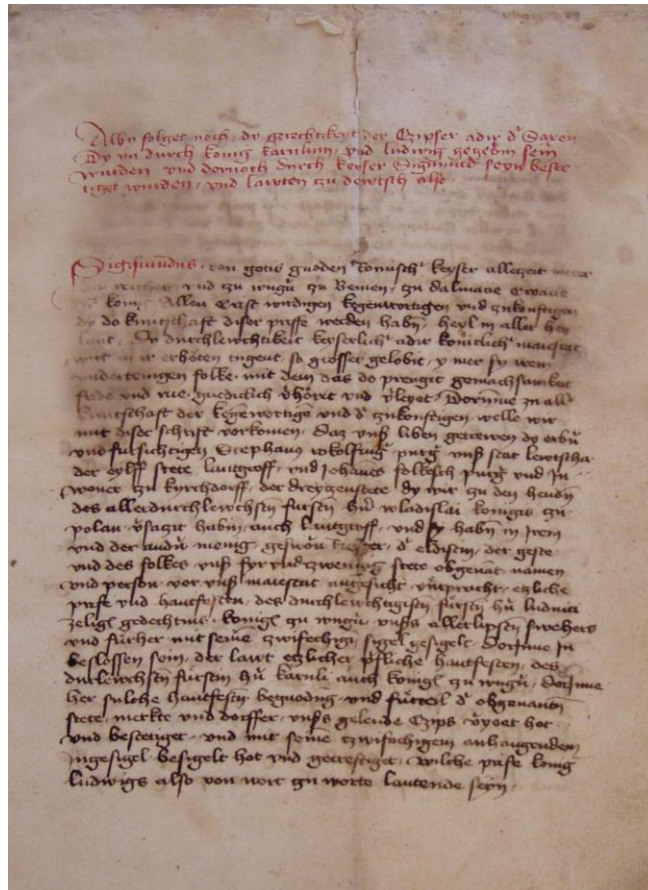 Alhy folget noch dy gerechtikeyt der Czipser adir d' Saxen
Dy yn durch konig karulum, vnd ludwig gegebin sein
wurden vnd dornoch durch keyser Sigmund seyn beste
tiget wurden, vnd lawten zu dewtsch also
Sigismundus von gotis gnoden Romisch' keyser allezeit merer
des reiches vnd zu vngern zu Bemen, zu dalmacie croacie
konig Allen Erst wirdigen kegenwortigen vnd zukonftigen
dy do kuntschaft diser priffe werden habin, heyl in aller hey
lant, So durchlewchtikeit keyserlich' adir koniclich' maiestat
wirt in ir erhoten tugent, so grosser gelobit, y mer sy irem
vndertenigen folke mit dem das do prengit gemachsamkeit
frede vnd rue gnediclich vorhorit vnd vorleyet, Dorumme zu all'
kuntschaft der kegenwertige vnd d' zukonftigen, welle wir
mit diser schrift vorkomen, daz vnss liben getrewen dy erbern
vnd fursichtigen Stephanus purger vnss stat lewtscha
der eylff stete, lantgroff, vnd Johanes folkesch purger vnd In
woner zu kyrchdorff, der dreytzenstete dy wir zu den henden
des allerdurchlewchsten fursten hern wladislai konigis zu
polan vorsaczit habin, auch lantgroff, vnd sy habin in irem
vnd der andern menig gesworn, d' eldisten, der geste
vnd des folkes vnss fyr vnd zwentzig stete obgenant namen
vnd person vor vnss maiestat angesicht, etzliche
prife vnd hantfesten, des durchlewchtigisten fursten hern ludwici
zeligs gedechtnis, konigs zu vngern, vnsss allerlipsten swehers
vnd furher mit seine zwifechigen sigel gesigelt, Dorinne in
beslossen sein, der lawt etzlicher hantfesten, des
durlewchsten fursten hern karuli auch konigs zu vngern, Dorinne
her sulche hantfesten begnoding vnd furteil d' obgenanten
stete, merkte vnd dorffer, vnsss gelende Czips, hot
vnd bestetiget, vnd mit seine czwifochigem anhangenden
ingesigel besigelt hot vnd gefestiget, wilche prife konig
ludwigs also von wort zu worte lautende seyn,